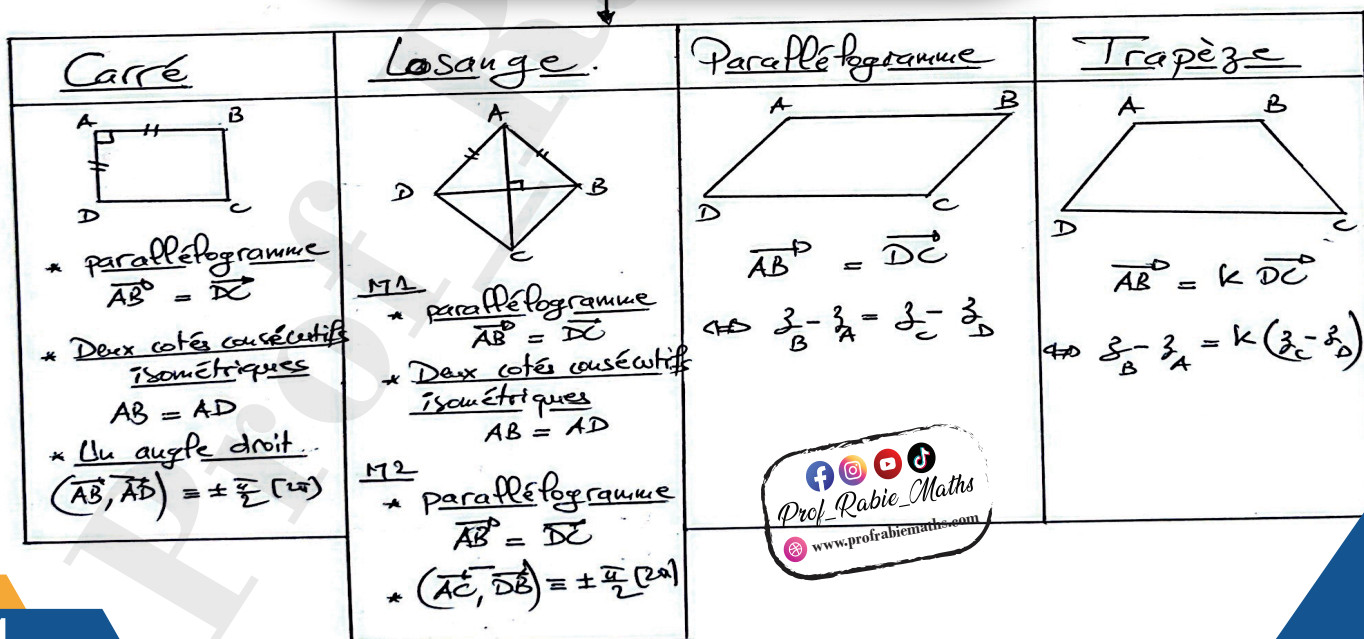 Carré
A
B
D
C
* parallélogramme
AB = DC
* Deux cotés consécutifs
isométriques
AB = AD
* Un angle droit
(AB, AD) ≡ ± π/2 [2π]
Losange.
A
D
B
C
M1
* parallélogramme
AB = DC
* Deux cotés consécutifs
isométriques
AB = AD
M2
* parallélogramme
AB = DC
* (AC, DB) ≡ ± π/2 [2π]
Parallélogramme
A
B
D
C
AB = DC
⇔ z_B - z_A = z_C - z_D
Trapèze
A
B
D
C
AB = K DC
⇔ z_B - z_A = K (z_C - z_D)
Prof_Rabie_Maths
www.profrabiemaths.com
Prof_R
1